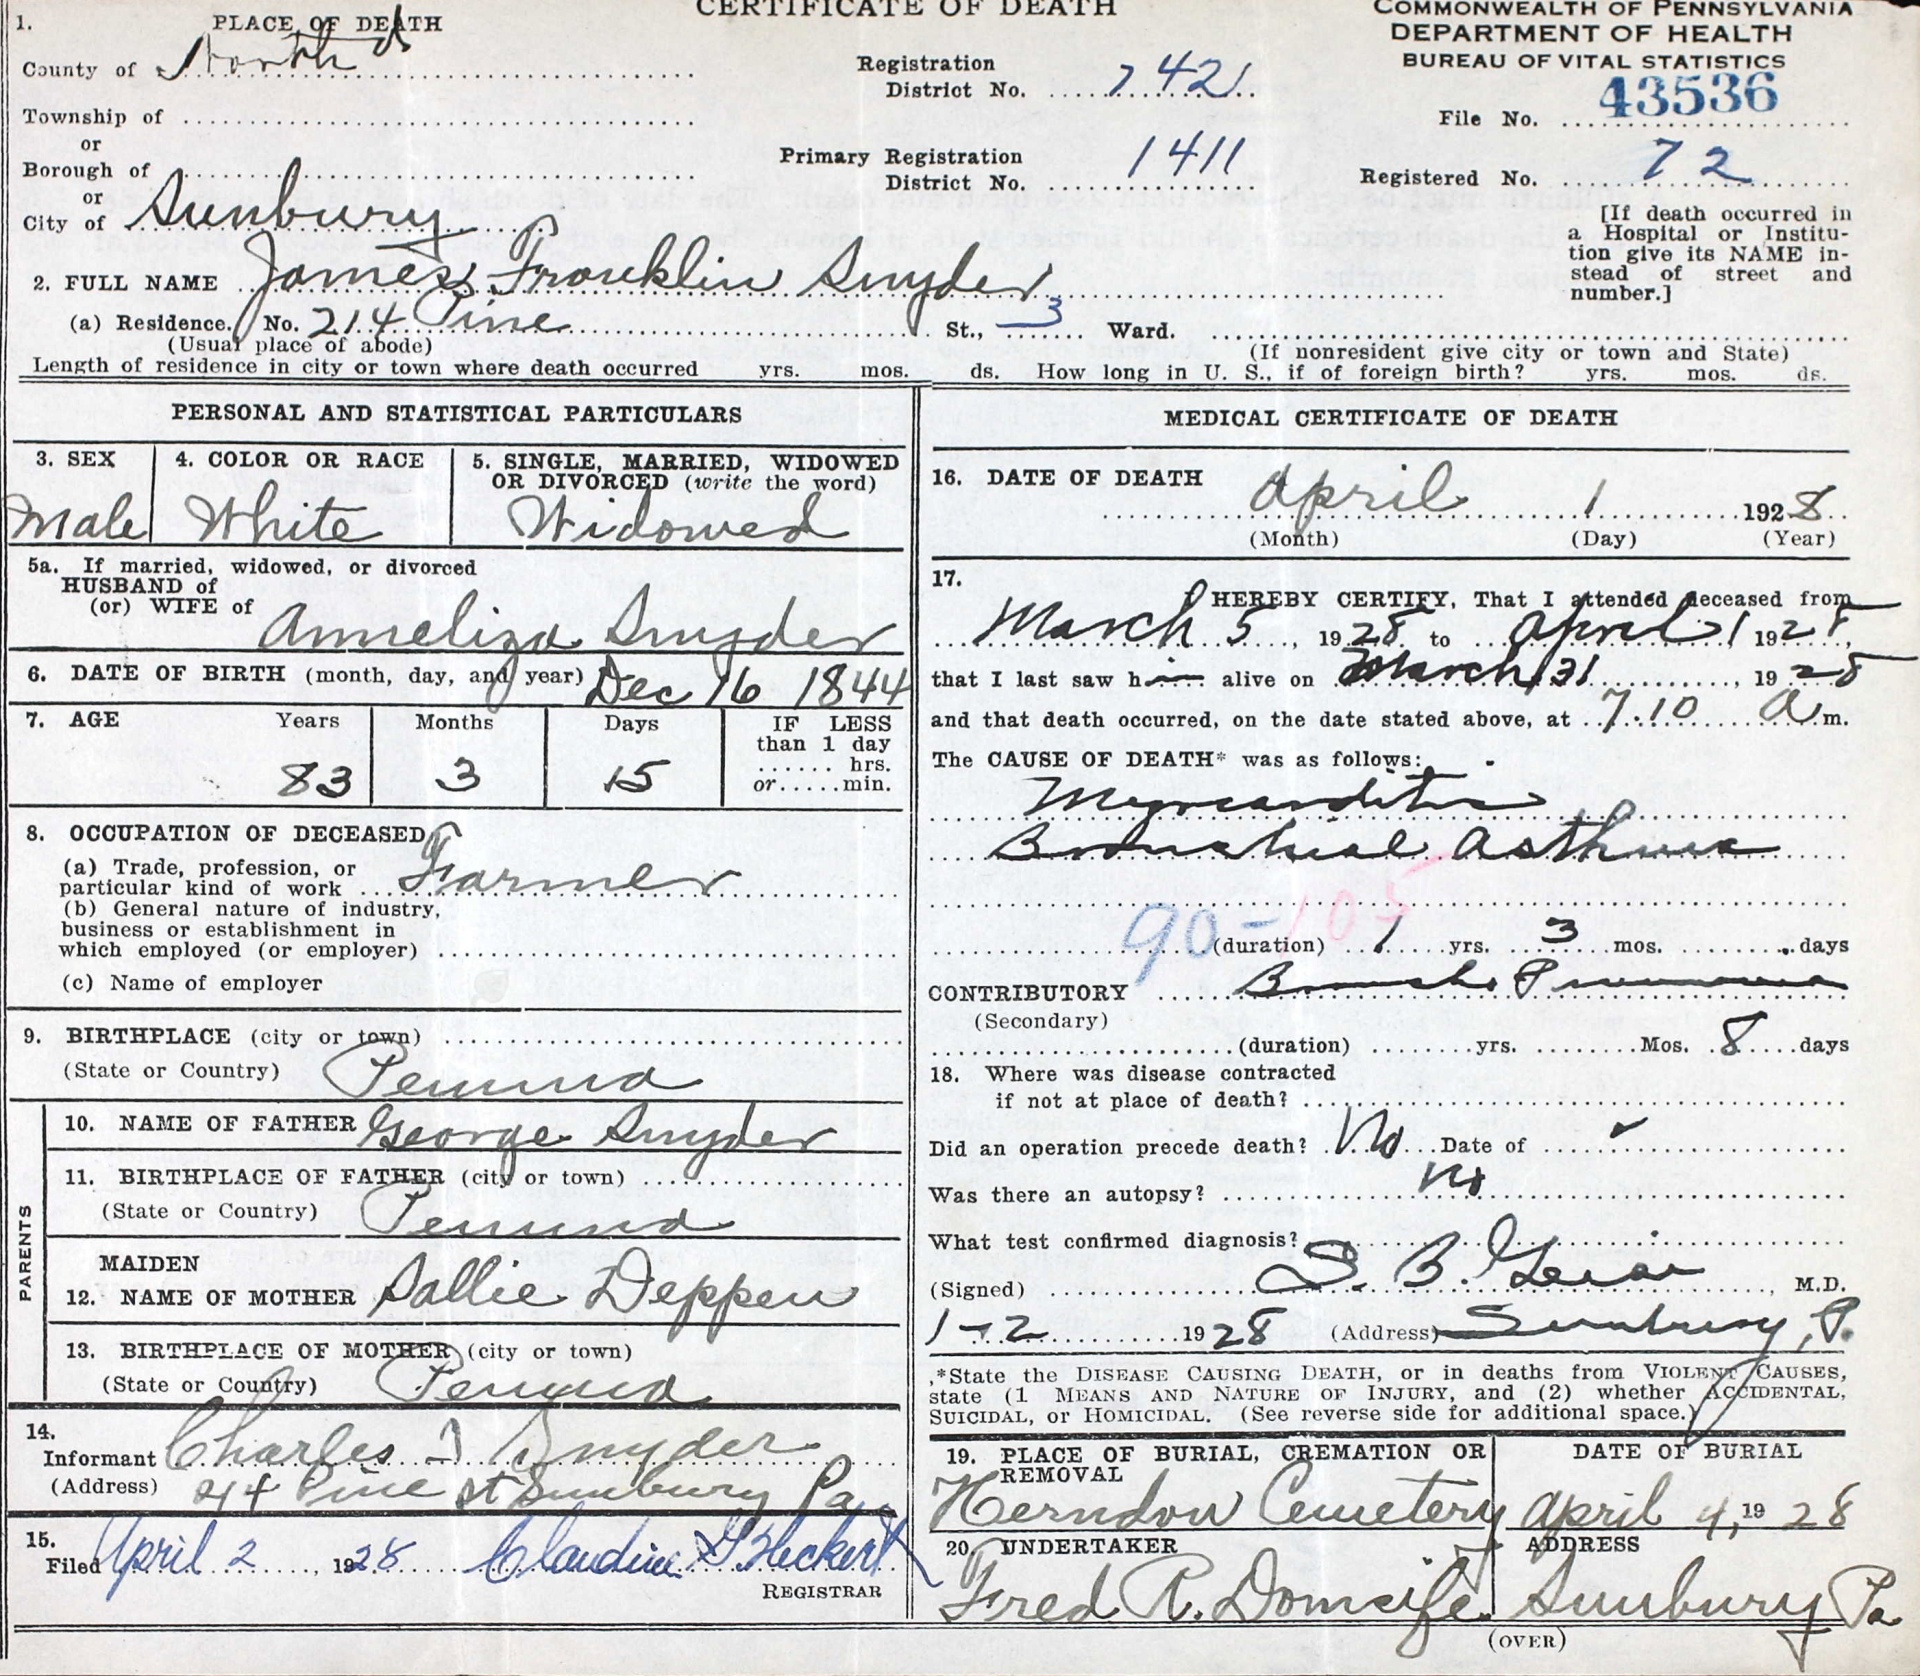 CERTIFICATE OF DEATH
COMMONWEALTH OF PENNSYLVANIA
DEPARTMENT OF HEALTH
BUREAU OF VITAL STATISTICS
1. PLACE OF DEATH
County of North'd
Registration District No. 742
File No. 43536
Township of
or
Borough of
or
City of Sunbury
Primary Registration District No. 1411
Registered No. 72
[If death occurred in
a Hospital or Institu-
tion give its NAME in-
stead of street and
number.]
2. FULL NAME James Franklin Snyder
(a) Residence. No. 214 Pine St., 3 Ward.
(Usual place of abode) (If nonresident give city or town and State)
Length of residence in city or town where death occurred yrs. mos. ds. How long in U. S., if of foreign birth? yrs. mos. ds.
PERSONAL AND STATISTICAL PARTICULARS
3. SEX
Male
4. COLOR OR RACE
White
5. SINGLE, MARRIED, WIDOWED
OR DIVORCED (write the word)
Widowed
5a. If married, widowed, or divorced
HUSBAND of
(or) WIFE of Anneliza Snyder
6. DATE OF BIRTH (month, day, and year) Dec 16 1844
7. AGE Years Months Days IF LESS
than 1 day
...... hrs.
or.....min.
83 3 15
8. OCCUPATION OF DECEASED
(a) Trade, profession, or
particular kind of work Farmer
(b) General nature of industry,
business or establishment in
which employed (or employer)
(c) Name of employer
9. BIRTHPLACE (city or town)
(State or Country) Penna
PARENTS
10. NAME OF FATHER George Snyder
11. BIRTHPLACE OF FATHER (city or town)
(State or Country) Penna
MAIDEN
12. NAME OF MOTHER Sallie Deppen
13. BIRTHPLACE OF MOTHER (city or town)
(State or Country) Penna
14.
Informant Charles Snyder
(Address) 214 Pine st Sunbury Pa
15.
Filed April 2, 1928 Claudine G. Heckert
REGISTRAR
MEDICAL CERTIFICATE OF DEATH
16. DATE OF DEATH April 1 1928
(Month) (Day) (Year)
17.
I HEREBY CERTIFY, That I attended deceased from
March 5, 1928 to April 1 1928,
that I last saw him alive on March 31, 1928
and that death occurred, on the date stated above, at 7.10 A m.
The CAUSE OF DEATH* was as follows:
Myocarditis
Bronchial Asthma
90-105
(duration) 1 yrs. 3 mos. days
CONTRIBUTORY Broncho Pneumonia
(Secondary)
(duration) yrs. Mos. 8 days
18. Where was disease contracted
if not at place of death?
Did an operation precede death? No Date of ✓
Was there an autopsy? No
What test confirmed diagnosis?
(Signed) M.D.
1-2 1928 (Address) Sunbury, P.
*State the DISEASE CAUSING DEATH, or in deaths from VIOLENT CAUSES,
state (1 MEANS AND NATURE OF INJURY, and (2) whether ACCIDENTAL,
SUICIDAL, or HOMICIDAL. (See reverse side for additional space.)
19. PLACE OF BURIAL, CREMATION OR
REMOVAL
Herndon Cemetery
DATE OF BURIAL
April 4, 1928
20. UNDERTAKER
Fred R. Domsife
ADDRESS
Sunbury Pa
(OVER)